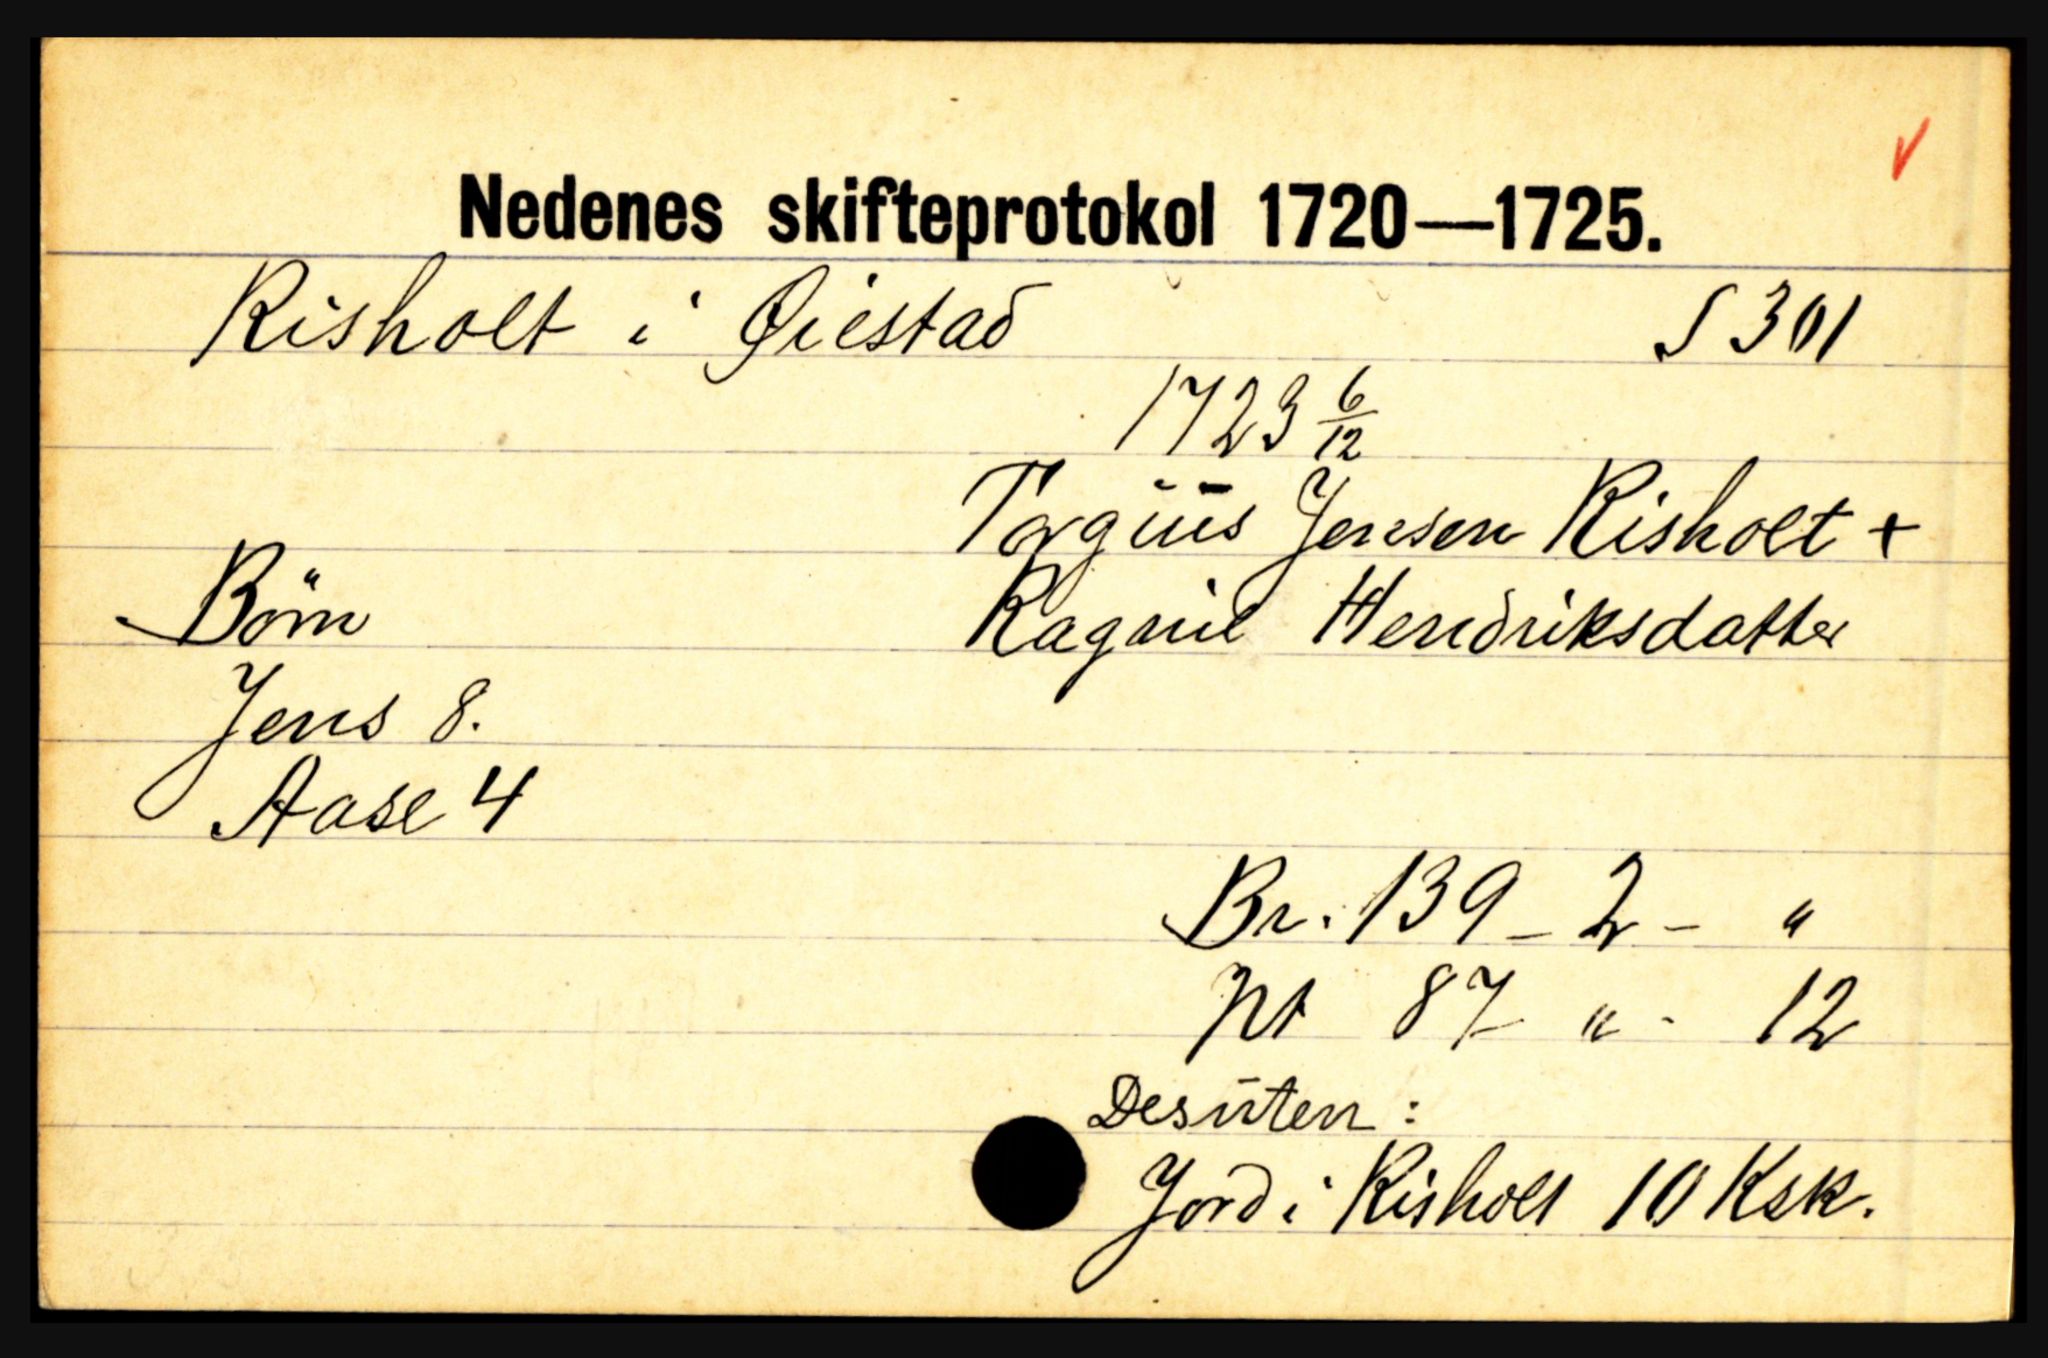 Nedenes skifteprotokol 1720—1725.
Risholt i Øiestad S 301
1723 6/12
Torgiüs Jensen Risholt +
Børn Ragnil Hendriksdatter
Jens 8.
Aase 4
Br. 139 - 2 - "
Nt 87 " - 12
Desuten :
Jord i Risholt 10 Ksk.